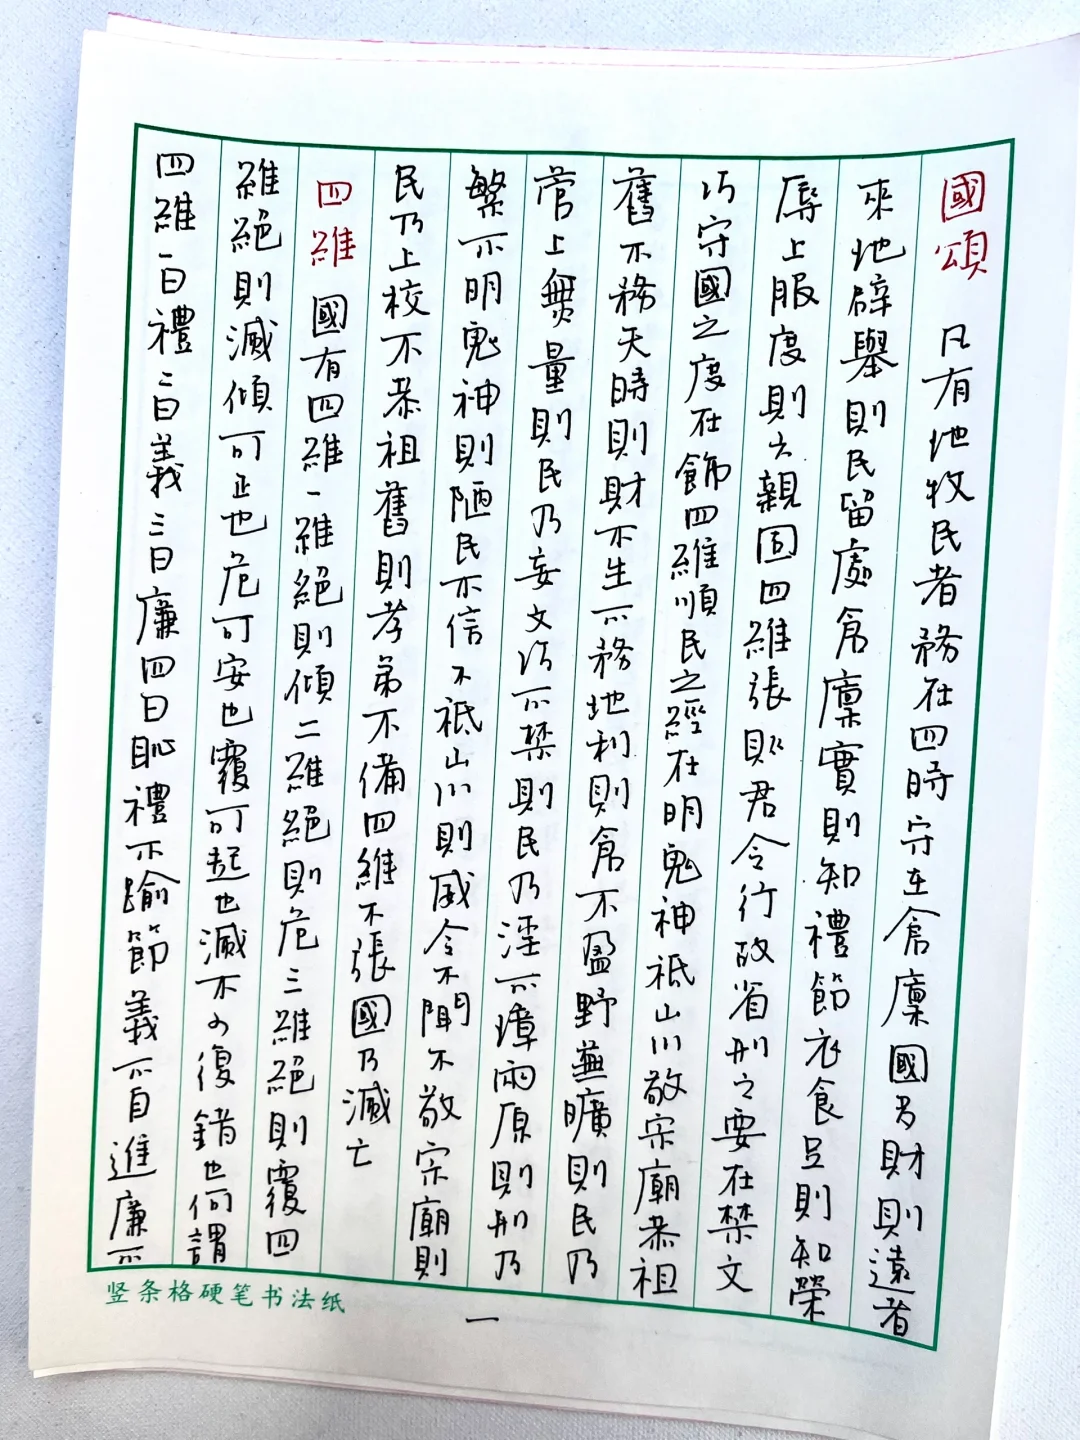 國頌 凡有地牧民者務在四時守在倉廩國多財則遠者
來地辟舉則民留處倉廩實則知禮節衣食足則知榮
辱上服度則六親固四維張則君令行故省刑之要在禁文
巧守國之度在飾四維順民之經在明鬼神祗山川敬宗廟恭祖
舊不務天時則財不生不務地利則倉不盈野蕪曠則民乃
菅上無量則民乃妄文巧不禁則民乃淫不璋兩原則刑乃
繁不明鬼神則陋民不信不祗山川則威令不聞不敬宗廟則
民乃上校不恭祖舊則孝弟不備四維不張國乃滅亡
四維 國有四維一維絕則傾二維絕則危三維絕則覆四
維絕則滅傾可正也危可安也覆可起也滅不可復錯也何謂
四維一曰禮二曰義三曰廉四曰恥禮不踰節義不自進廉不
竖条格硬笔书法纸
一